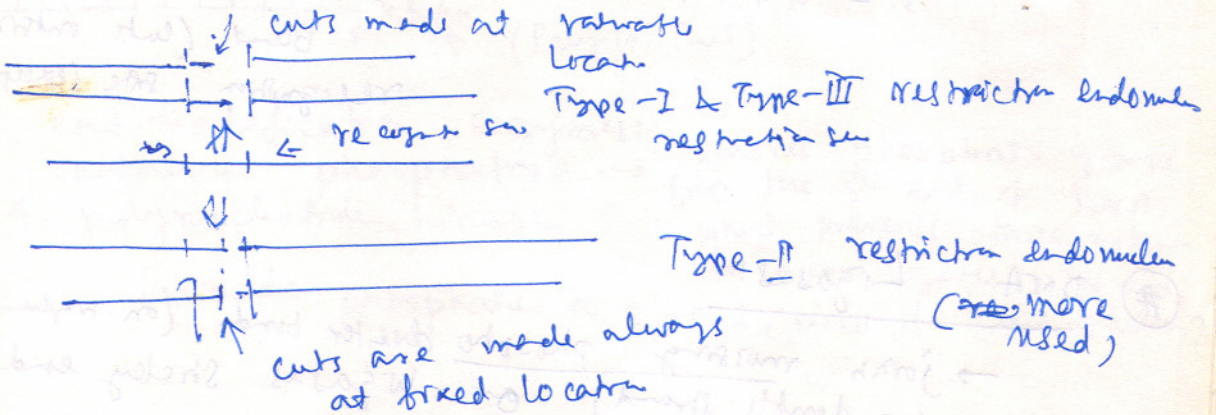 cuts made at variable
Locatn
Type-I & Type-III restrictn endonuclea
restriction se
← recognt se
Type-II restrictn endonuclea
(more
used)
cuts are made always
at fixed location